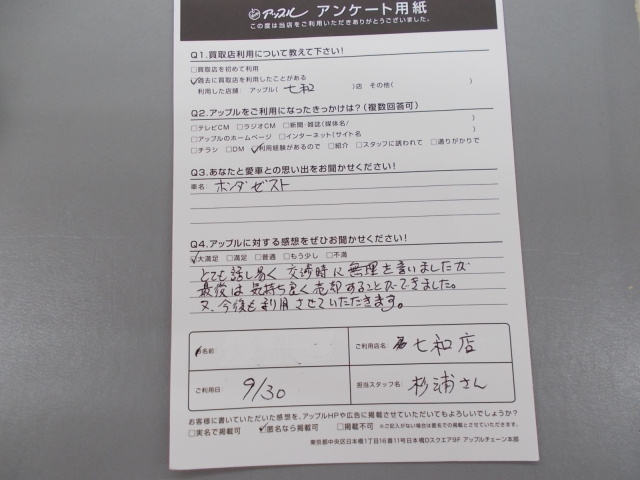 アップル アンケート用紙
この度は当店をご利用いただきありがとうございました。
Q1.買取店利用について教えて下さい!
□買取店を初めて利用
☑過去に買取店を利用したことがある
利用した店舗: アップル( 七和 )店 その他( )
Q2.アップルをご利用になったきっかけは?(複数回答可)
□テレビCM □ラジオCM □新聞・雑誌(媒体名/ )
□アップルのホームページ □インターネット(サイト名 )
□チラシ □DM ☑利用経験があるので □紹介 □スタッフに誘われて □通りがかりで
Q3.あなたと愛車との思い出をお聞かせください!
車名: ホンダ ゼスト
Q4.アップルに対する感想をぜひお聞かせください!
☑大満足 □満足 □普通 □もう少し □不満
とても話し易く 交渉時に無理を言いましたが
最後は気持ち良く売却することができました。
又、今後も利用させていただきます。
お名前
ご利用店名: 七和店
ご利用日: 9/30
担当スタッフ名: 杉浦さん
お客様に書いていただいた感想を、アップルHPや広告に掲載させていただいてもよろしいでしょうか?
□実名で掲載可 ☑匿名なら掲載可 □掲載不可 ※ご記入がない場合は匿名での掲載とさせていただきます。
東京都中央区日本橋1丁目16番11号日本橋Dスクエア9F アップルチェーン本部